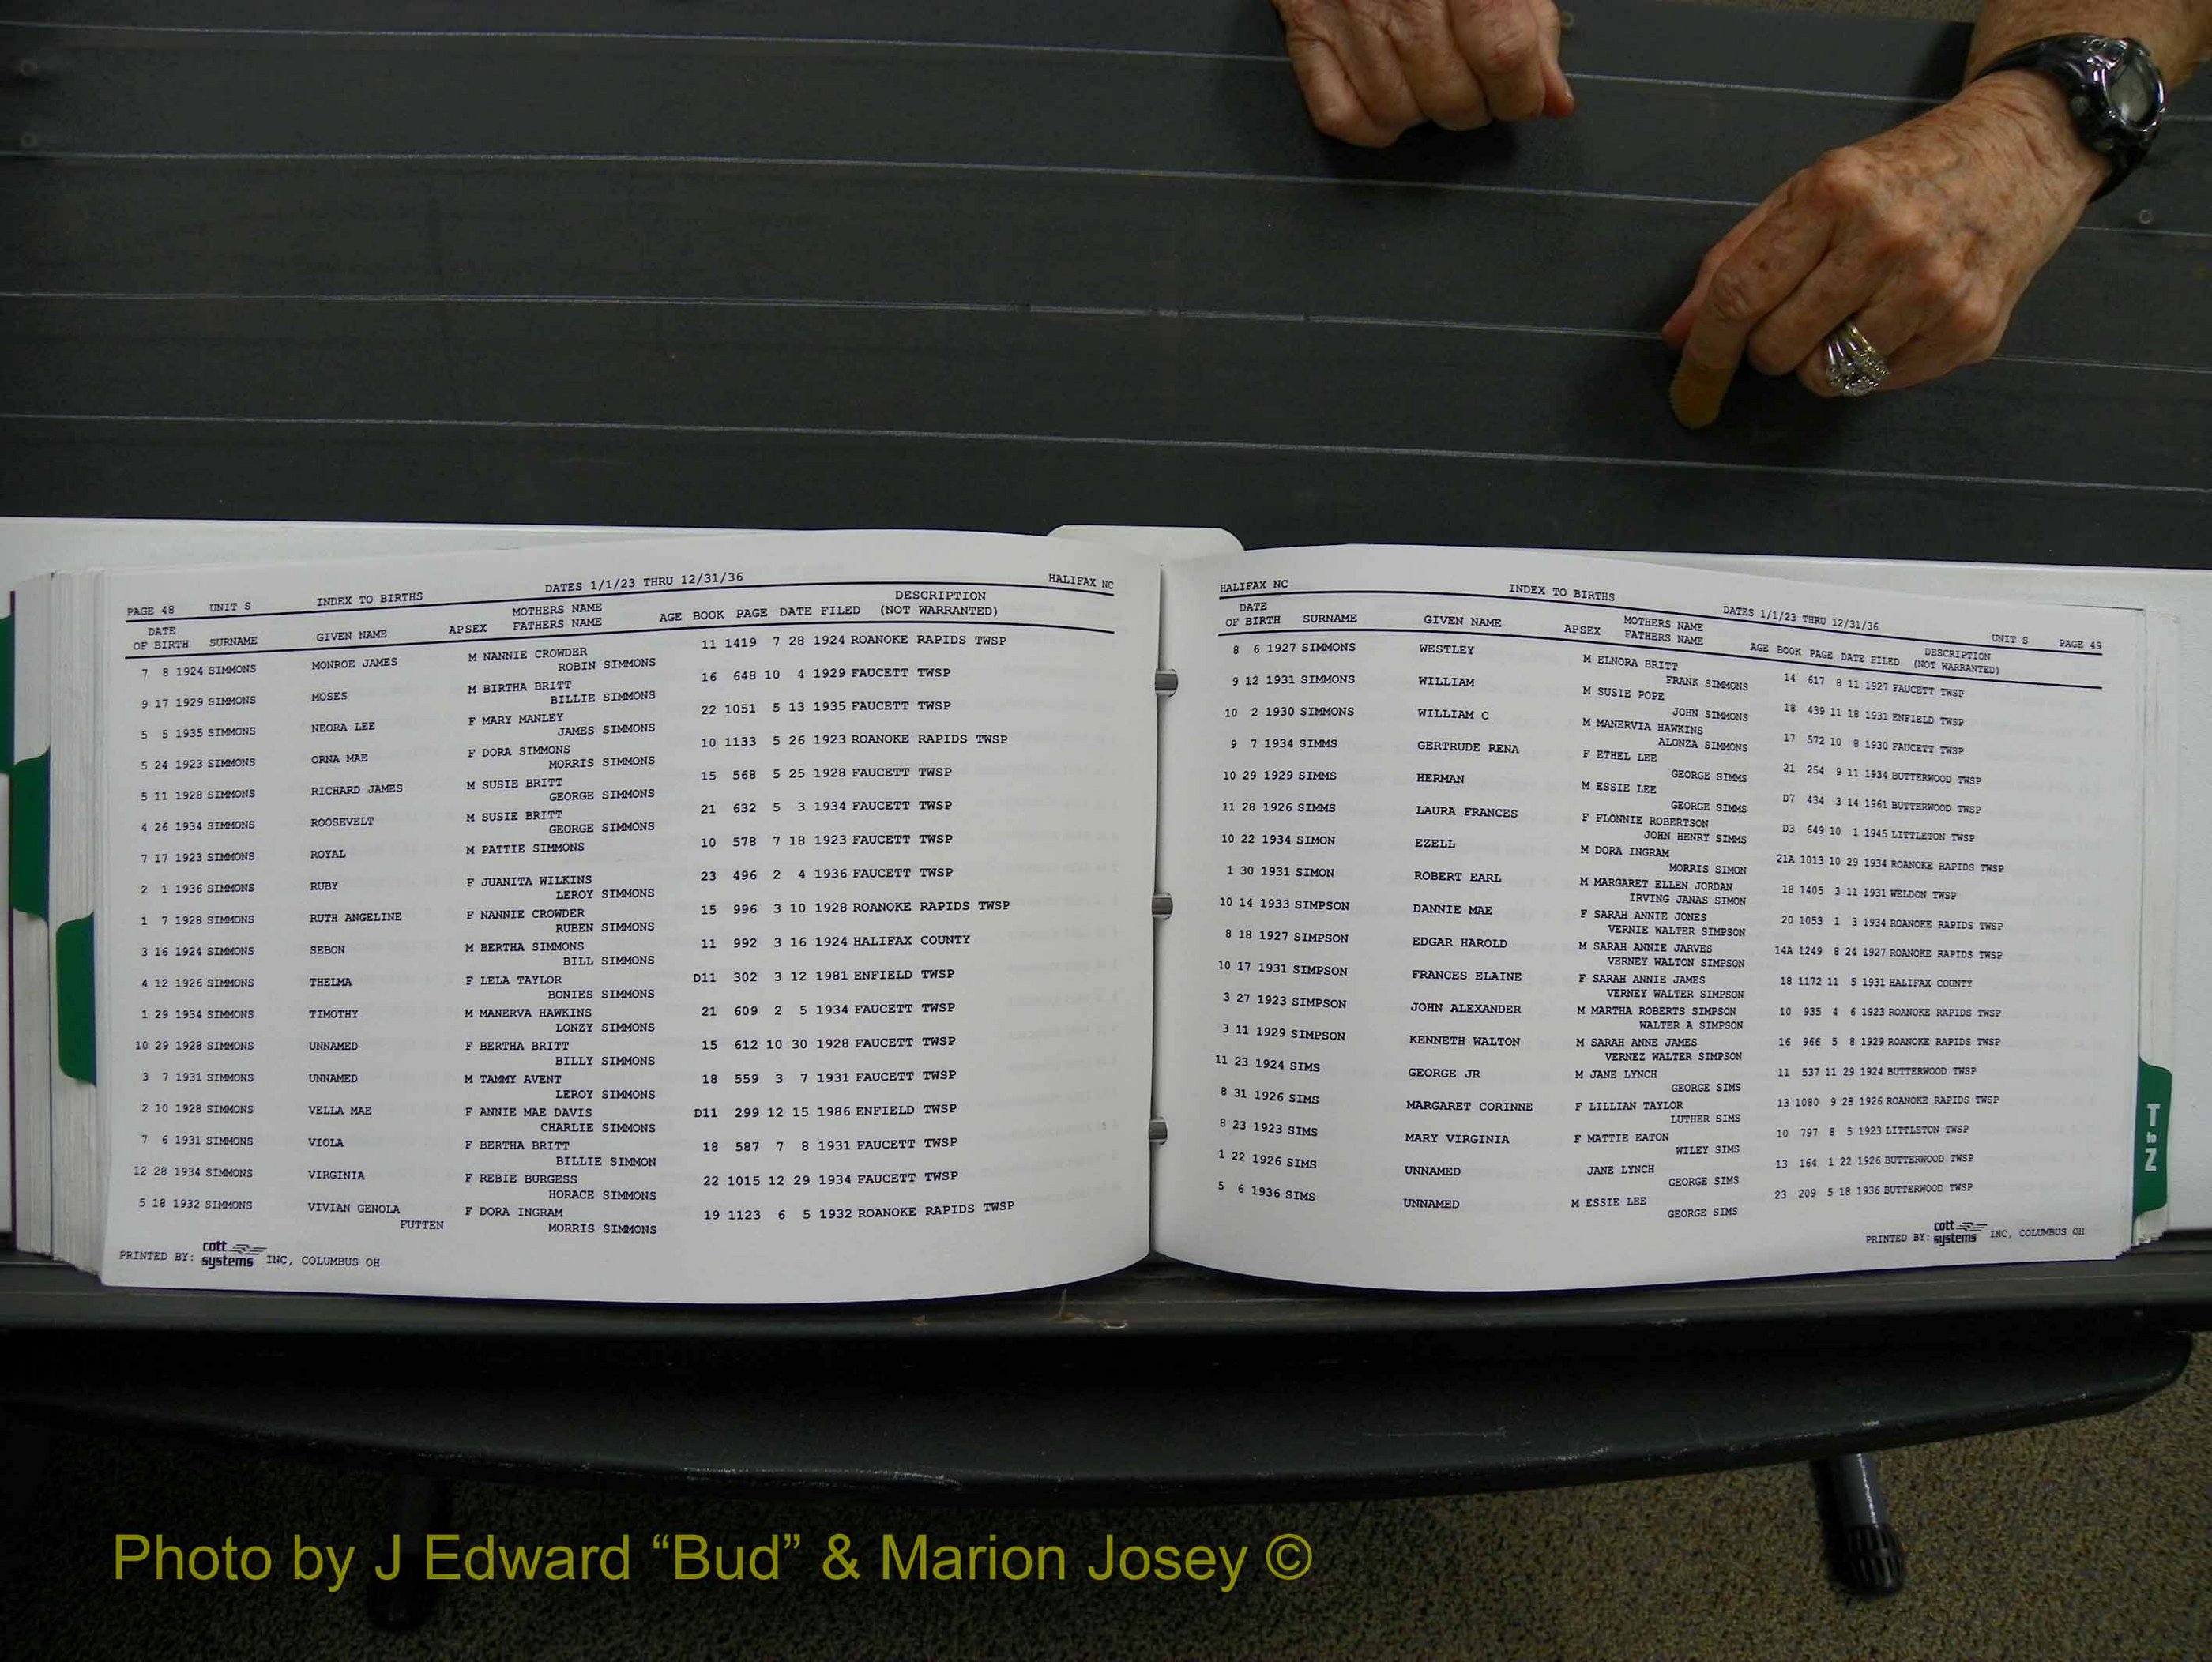 PAGE 48 UNIT S INDEX TO BIRTHS DATES 1/1/23 THRU 12/31/36 HALIFAX NC
DATE MOTHERS NAME DESCRIPTION
OF BIRTH SURNAME GIVEN NAME APSEX FATHERS NAME AGE BOOK PAGE DATE FILED (NOT WARRANTED)
7 8 1924 SIMMONS MONROE JAMES M NANNIE CROWDER 11 1419 7 28 1924 ROANOKE RAPIDS TWSP
ROBIN SIMMONS
9 17 1929 SIMMONS MOSES M BIRTHA BRITT 16 648 10 4 1929 FAUCETT TWSP
BILLIE SIMMONS
5 5 1935 SIMMONS NEORA LEE F MARY MANLEY 22 1051 5 13 1935 FAUCETT TWSP
JAMES SIMMONS
5 24 1923 SIMMONS ORNA MAE F DORA SIMMONS 10 1133 5 26 1923 ROANOKE RAPIDS TWSP
MORRIS SIMMONS
5 11 1928 SIMMONS RICHARD JAMES M SUSIE BRITT 15 568 5 25 1928 FAUCETT TWSP
GEORGE SIMMONS
4 26 1934 SIMMONS ROOSEVELT M SUSIE BRITT 21 632 5 3 1934 FAUCETT TWSP
GEORGE SIMMONS
7 17 1923 SIMMONS ROYAL M PATTIE SIMMONS 10 578 7 18 1923 FAUCETT TWSP
2 1 1936 SIMMONS RUBY F JUANITA WILKINS 23 496 2 4 1936 FAUCETT TWSP
LEROY SIMMONS
1 7 1928 SIMMONS RUTH ANGELINE F NANNIE CROWDER 15 996 3 10 1928 ROANOKE RAPIDS TWSP
RUBEN SIMMONS
3 16 1924 SIMMONS SEBON M BERTHA SIMMONS 11 992 3 16 1924 HALIFAX COUNTY
BILL SIMMONS
4 12 1926 SIMMONS THELMA F LELA TAYLOR D11 302 3 12 1981 ENFIELD TWSP
BONIES SIMMONS
1 29 1934 SIMMONS TIMOTHY M MANERVA HAWKINS 21 609 2 5 1934 FAUCETT TWSP
LONZY SIMMONS
10 29 1928 SIMMONS UNNAMED F BERTHA BRITT 15 612 10 30 1928 FAUCETT TWSP
BILLY SIMMONS
3 7 1931 SIMMONS UNNAMED M TAMMY AVENT 18 559 3 7 1931 FAUCETT TWSP
LEROY SIMMONS
2 10 1928 SIMMONS VELLA MAE F ANNIE MAE DAVIS D11 299 12 15 1986 ENFIELD TWSP
CHARLIE SIMMONS
7 6 1931 SIMMONS VIOLA F BERTHA BRITT 18 587 7 8 1931 FAUCETT TWSP
BILLIE SIMMON
12 28 1934 SIMMONS VIRGINIA F REBIE BURGESS 22 1015 12 29 1934 FAUCETT TWSP
HORACE SIMMONS
5 18 1932 SIMMONS VIVIAN GENOLA F DORA INGRAM 19 1123 6 5 1932 ROANOKE RAPIDS TWSP
FUTTEN MORRIS SIMMONS
PRINTED BY: cott systems INC, COLUMBUS OH
HALIFAX NC INDEX TO BIRTHS DATES 1/1/23 THRU 12/31/36 UNIT S PAGE 49
DATE MOTHERS NAME DESCRIPTION
OF BIRTH SURNAME GIVEN NAME APSEX FATHERS NAME AGE BOOK PAGE DATE FILED (NOT WARRANTED)
8 6 1927 SIMMONS WESTLEY M ELNORA BRITT 14 617 8 11 1927 FAUCETT TWSP
FRANK SIMMONS
9 12 1931 SIMMONS WILLIAM M SUSIE POPE 18 439 11 18 1931 ENFIELD TWSP
JOHN SIMMONS
10 2 1930 SIMMONS WILLIAM C M MANERVIA HAWKINS 17 572 10 8 1930 FAUCETT TWSP
ALONZA SIMMONS
9 7 1934 SIMMS GERTRUDE RENA F ETHEL LEE 21 254 9 11 1934 BUTTERWOOD TWSP
GEORGE SIMMS
10 29 1929 SIMMS HERMAN M ESSIE LEE D7 434 3 14 1961 BUTTERWOOD TWSP
GEORGE SIMMS
11 28 1926 SIMMS LAURA FRANCES F FLONNIE ROBERTSON D3 649 10 1 1945 LITTLETON TWSP
JOHN HENRY SIMMS
10 22 1934 SIMON EZELL M DORA INGRAM 21A 1013 10 29 1934 ROANOKE RAPIDS TWSP
MORRIS SIMON
1 30 1931 SIMON ROBERT EARL M MARGARET ELLEN JORDAN 18 1405 3 11 1931 WELDON TWSP
IRVING JANAS SIMON
10 14 1933 SIMPSON DANNIE MAE F SARAH ANNIE JONES 20 1053 1 3 1934 ROANOKE RAPIDS TWSP
VERNIE WALTER SIMPSON
8 18 1927 SIMPSON EDGAR HAROLD M SARAH ANNIE JARVES 14A 1249 8 24 1927 ROANOKE RAPIDS TWSP
VERNEY WALTON SIMPSON
10 17 1931 SIMPSON FRANCES ELAINE F SARAH ANNIE JAMES 18 1172 11 5 1931 HALIFAX COUNTY
VERNEY WALTER SIMPSON
3 27 1923 SIMPSON JOHN ALEXANDER M MARTHA ROBERTS SIMPSON 10 935 4 6 1923 ROANOKE RAPIDS TWSP
WALTER A SIMPSON
3 11 1929 SIMPSON KENNETH WALTON M SARAH ANNE JAMES 16 966 5 8 1929 ROANOKE RAPIDS TWSP
VERNEZ WALTER SIMPSON
11 23 1924 SIMS GEORGE JR M JANE LYNCH 11 537 11 29 1924 BUTTERWOOD TWSP
GEORGE SIMS
8 31 1926 SIMS MARGARET CORINNE F LILLIAN TAYLOR 13 1080 9 28 1926 ROANOKE RAPIDS TWSP
LUTHER SIMS
8 23 1923 SIMS MARY VIRGINIA F MATTIE EATON 10 797 8 5 1923 LITTLETON TWSP
WILEY SIMS
1 22 1926 SIMS UNNAMED JANE LYNCH 13 164 1 22 1926 BUTTERWOOD TWSP
GEORGE SIMS
5 6 1936 SIMS UNNAMED M ESSIE LEE 23 209 5 18 1936 BUTTERWOOD TWSP
GEORGE SIMS
PRINTED BY: cott systems INC, COLUMBUS OH
T to Z
Photo by J Edward “Bud” & Marion Josey ©